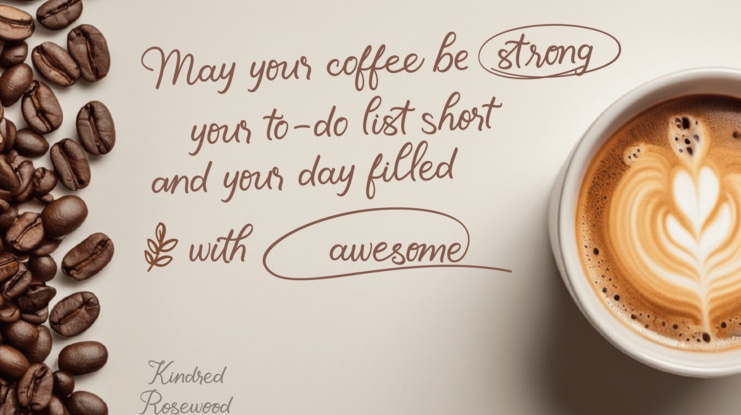 May your coffee be strong
your to-do list short
and your day filled
with awesome
Kindred
Rosewood